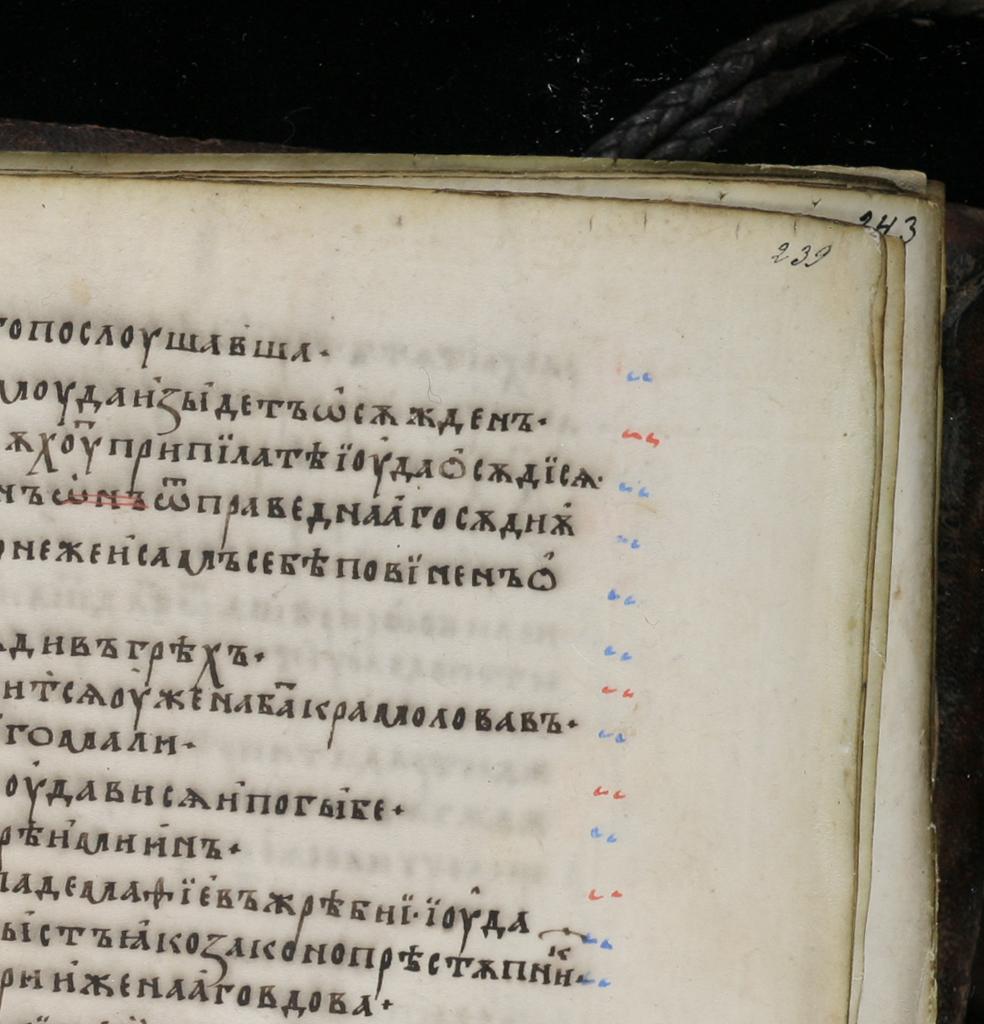 243
239
гопослоушавша·
моудаи҆зыдетъѡ҆сѫжденъ·
ѫхоуⷫ҇припїлатѣїоудаѻ҆сѫдїсѧ·
нъѡ҆нъѿправеднаа҆госѫднѫ
онежеи҆самъсебѣповїненъѻ҆
днвъгрѣхъ·
нтсѧоу҆женаба҃крамоловавъ·
гомали·
оу҆давнсѧи҆погы҆бе·
рѣи҆мнинъ·
падемаѳїе҆въжрѣбиї·їоу҆да
ы҆стъꙗ҆козаконопрѣстѫпниⷦ·
рии҆женаа҆говдова·